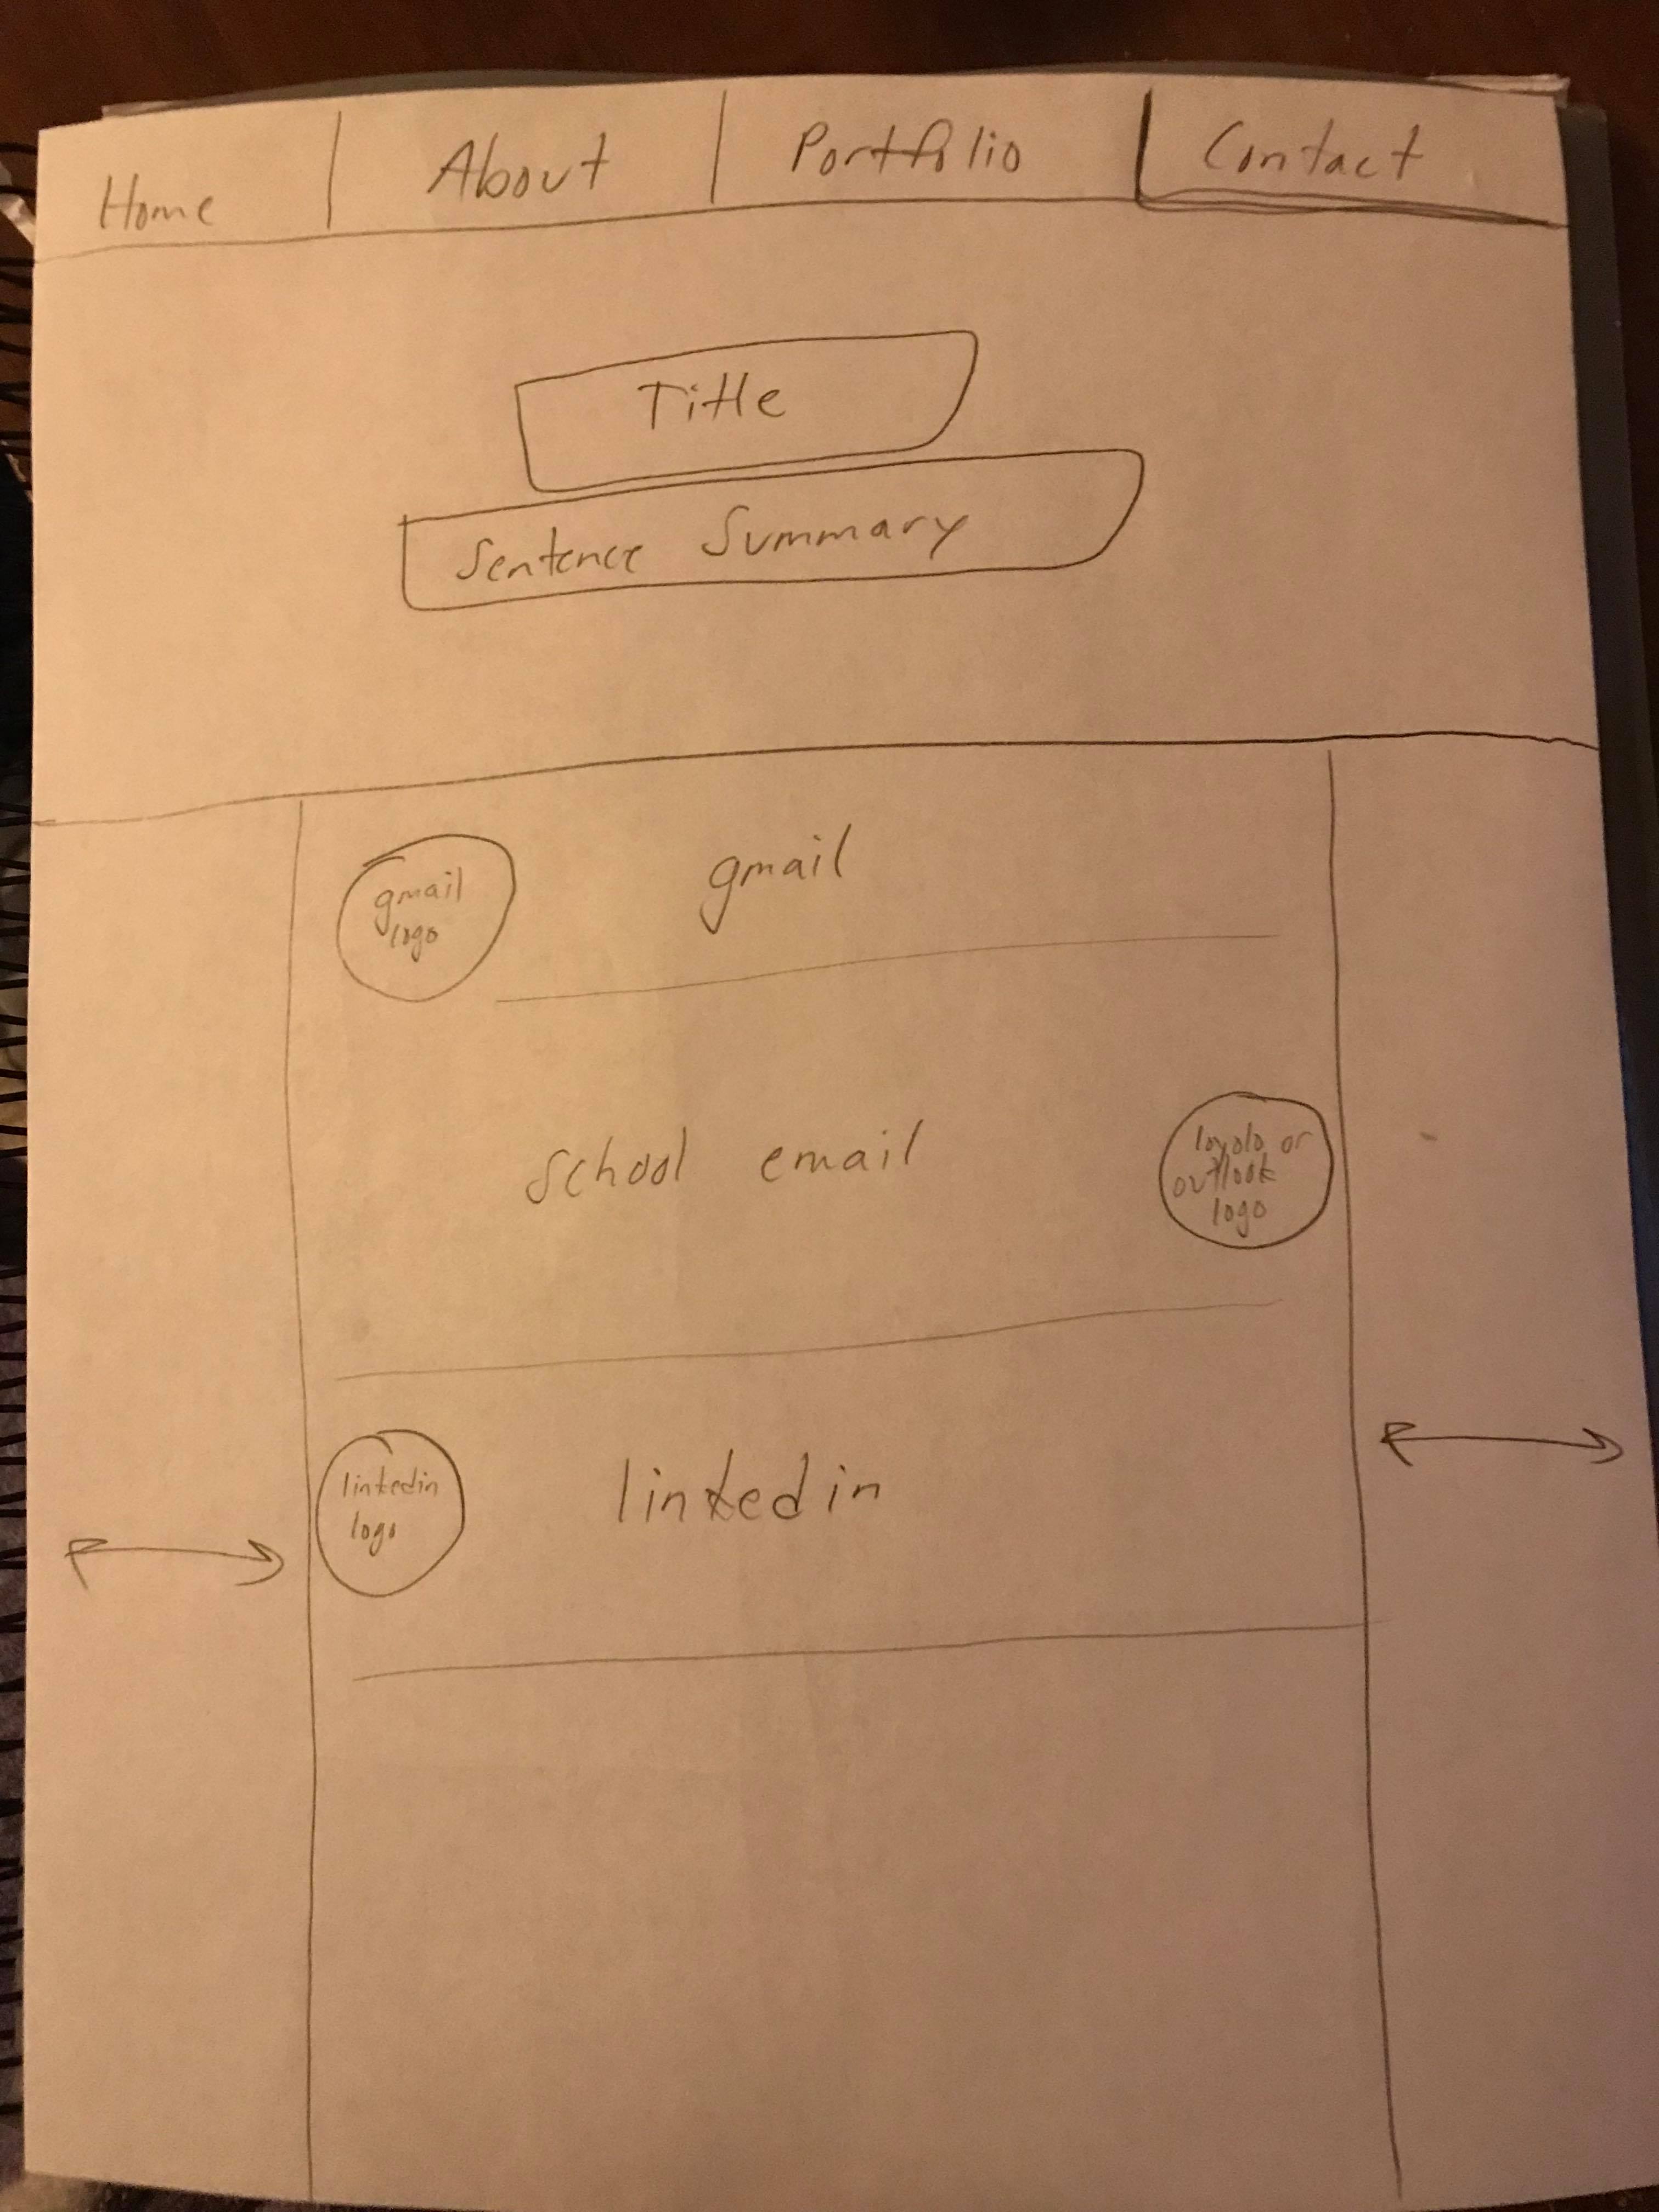 Home About Portfolio Contact
Title
Sentence Summary
gmail
logo
gmail
school email
loyolo or
outlook
logo
linkedin
logo
linkedin